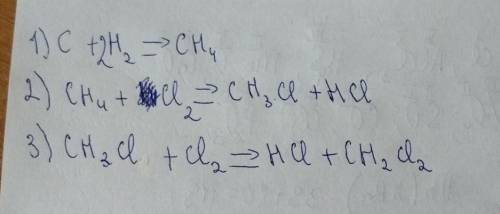 1) C + 2H₂ ⇒ CH₄
2) CH₄ + Cl₂ ⇒ CH₃Cl + HCl
3) CH₃Cl + Cl₂ ⇒ HCl + CH₂Cl₂